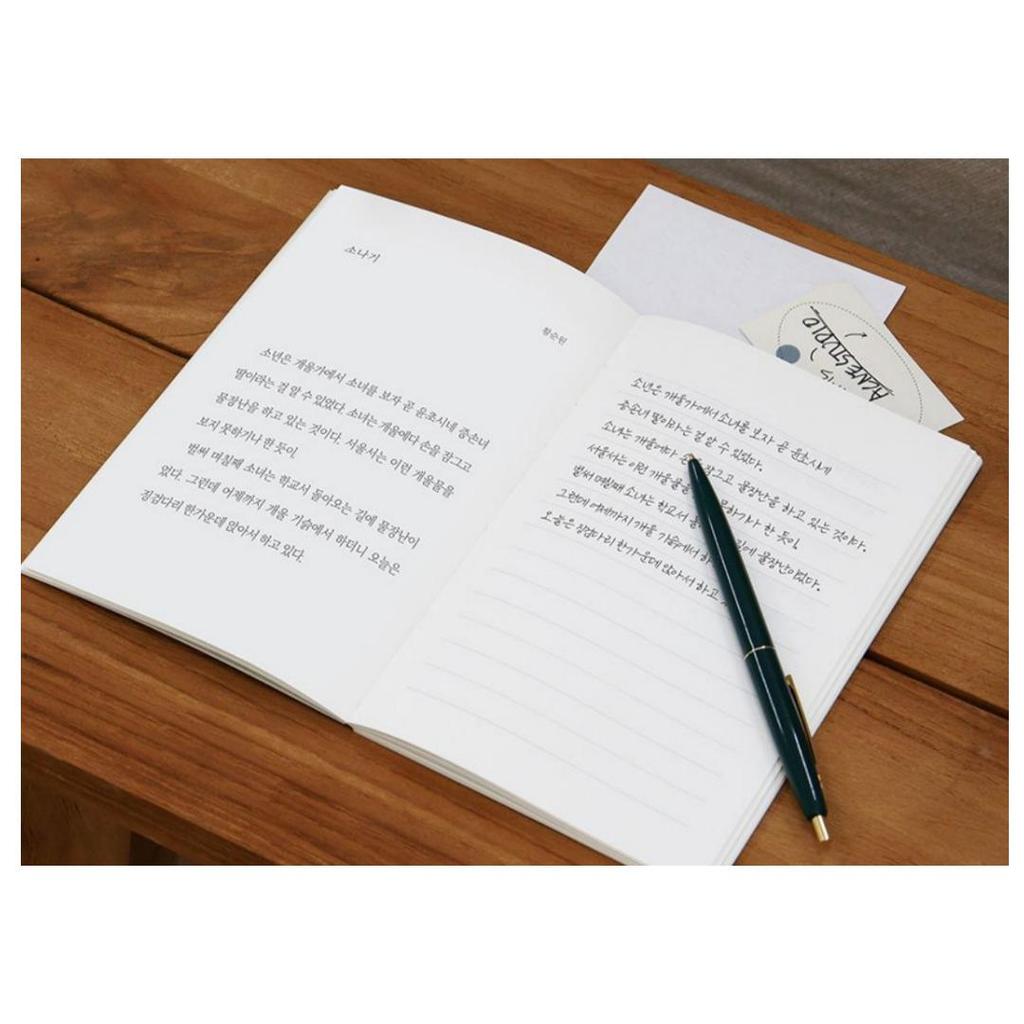 소나기
황순원
소년은 개울가에서 소녀를 보자 곧 윤초시네 증손녀
딸이라는 걸 알 수 있었다. 소녀는 개울에다 손을 잠그고
물장난을 하고 있는 것이다. 서울서는 이런 개울물을
보지 못하기나 한 듯이.
벌써 며칠째 소녀는 학교서 돌아오는 길에 물장난이
었다. 그런데 어제까지 개울 기슭에서 하더니 오늘은
징검다리 한가운데 앉아서 하고 있다.
소년은 개울가에서 소녀를 보자 곧 윤초시네
증손녀 딸이라는 걸 알 수 있었다.
소녀는 개울에다 잠그고 물장난을 하고 있는 것이다.
서울서는 이런 개울물을 못하기나 한 듯이.
벌써 며칠째 소녀는 학교서 길에 물장난이었다.
그런데 어제까지 개울 기슭에서
오늘은 징검다리 한가운데 앉아서 하고